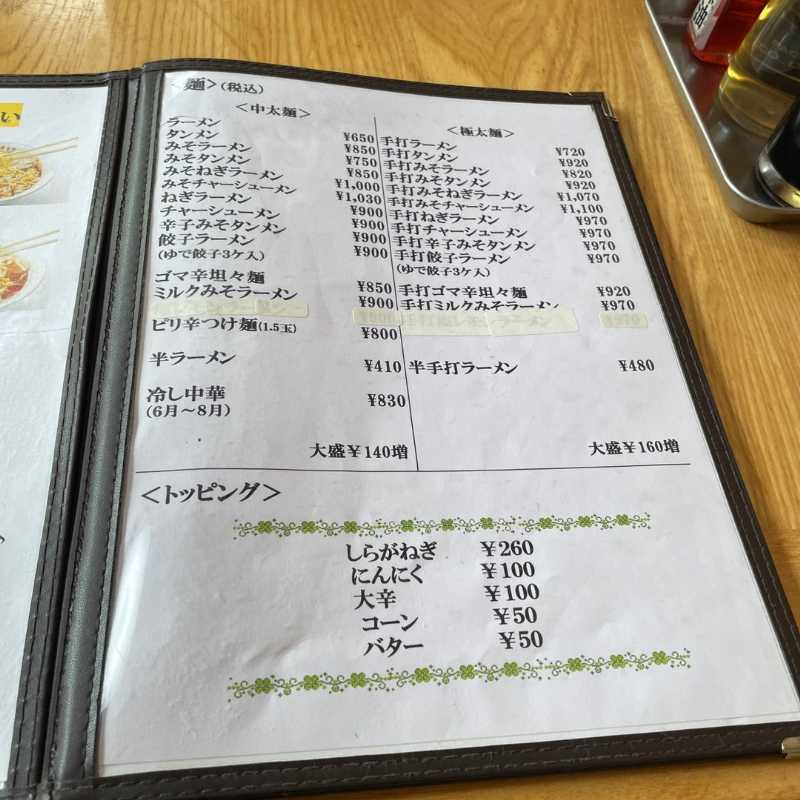 い
麺>(税込)
<中太麺>
ラーメン ¥650
タンメン ¥850
みそラーメン ¥750
みそタンメン ¥850
みそねぎラーメン ¥1,000
みそチャーシューメン ¥1,030
ねぎラーメン ¥900
チャーシューメン ¥900
辛子みそタンメン ¥900
餃子ラーメン ¥900
(ゆで餃子3ケ入)
ゴマ辛坦々麺 ¥850
ミルクみそラーメン ¥900
ピリ辛つけ麺(1.5玉) ¥800
半ラーメン ¥410
冷し中華 ¥830
(6月〜8月)
大盛¥140増
<極太麺>
手打ラーメン ¥720
手打タンメン ¥920
手打みそラーメン ¥820
手打みそタンメン ¥920
手打みそねぎラーメン ¥1,070
手打みそチャーシューメン ¥1,100
手打ねぎラーメン ¥970
手打チャーシューメン ¥970
手打辛子みそタンメン ¥970
手打餃子ラーメン ¥970
(ゆで餃子3ケ入)
手打ゴマ辛坦々麺 ¥920
手打ミルクみそラーメン ¥970
半手打ラーメン ¥480
大盛¥160増
<トッピング>
しらがねぎ ¥260
にんにく ¥100
大辛 ¥100
コーン ¥50
バター ¥50
油